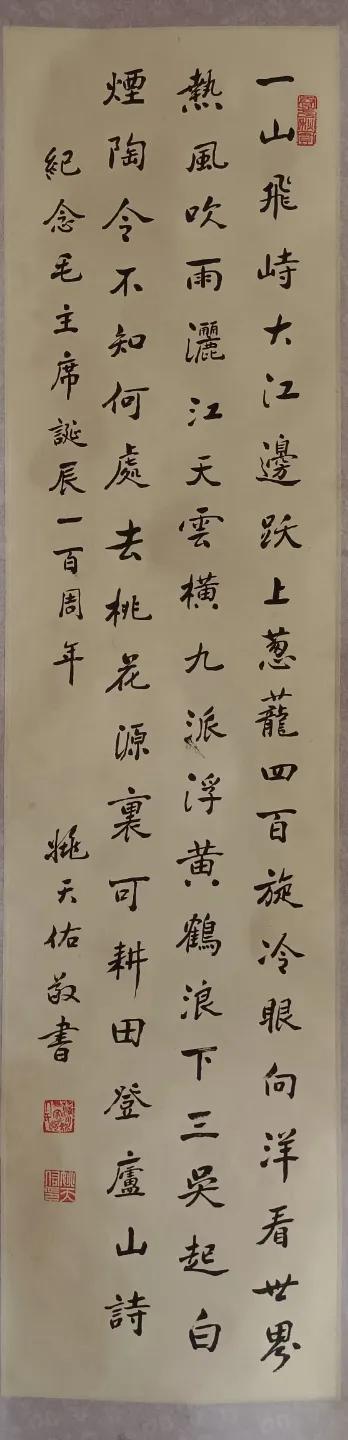 一山飛峙大江邊跃上葱蘢四百旋冷眼向洋看世界
熱風吹雨灑江天雲橫九派浮黄鶴浪下三吳起白
煙陶令不知何處去桃花源裏可耕田登廬山詩
紀念毛主席誕辰一百周年
姚天佑敬書